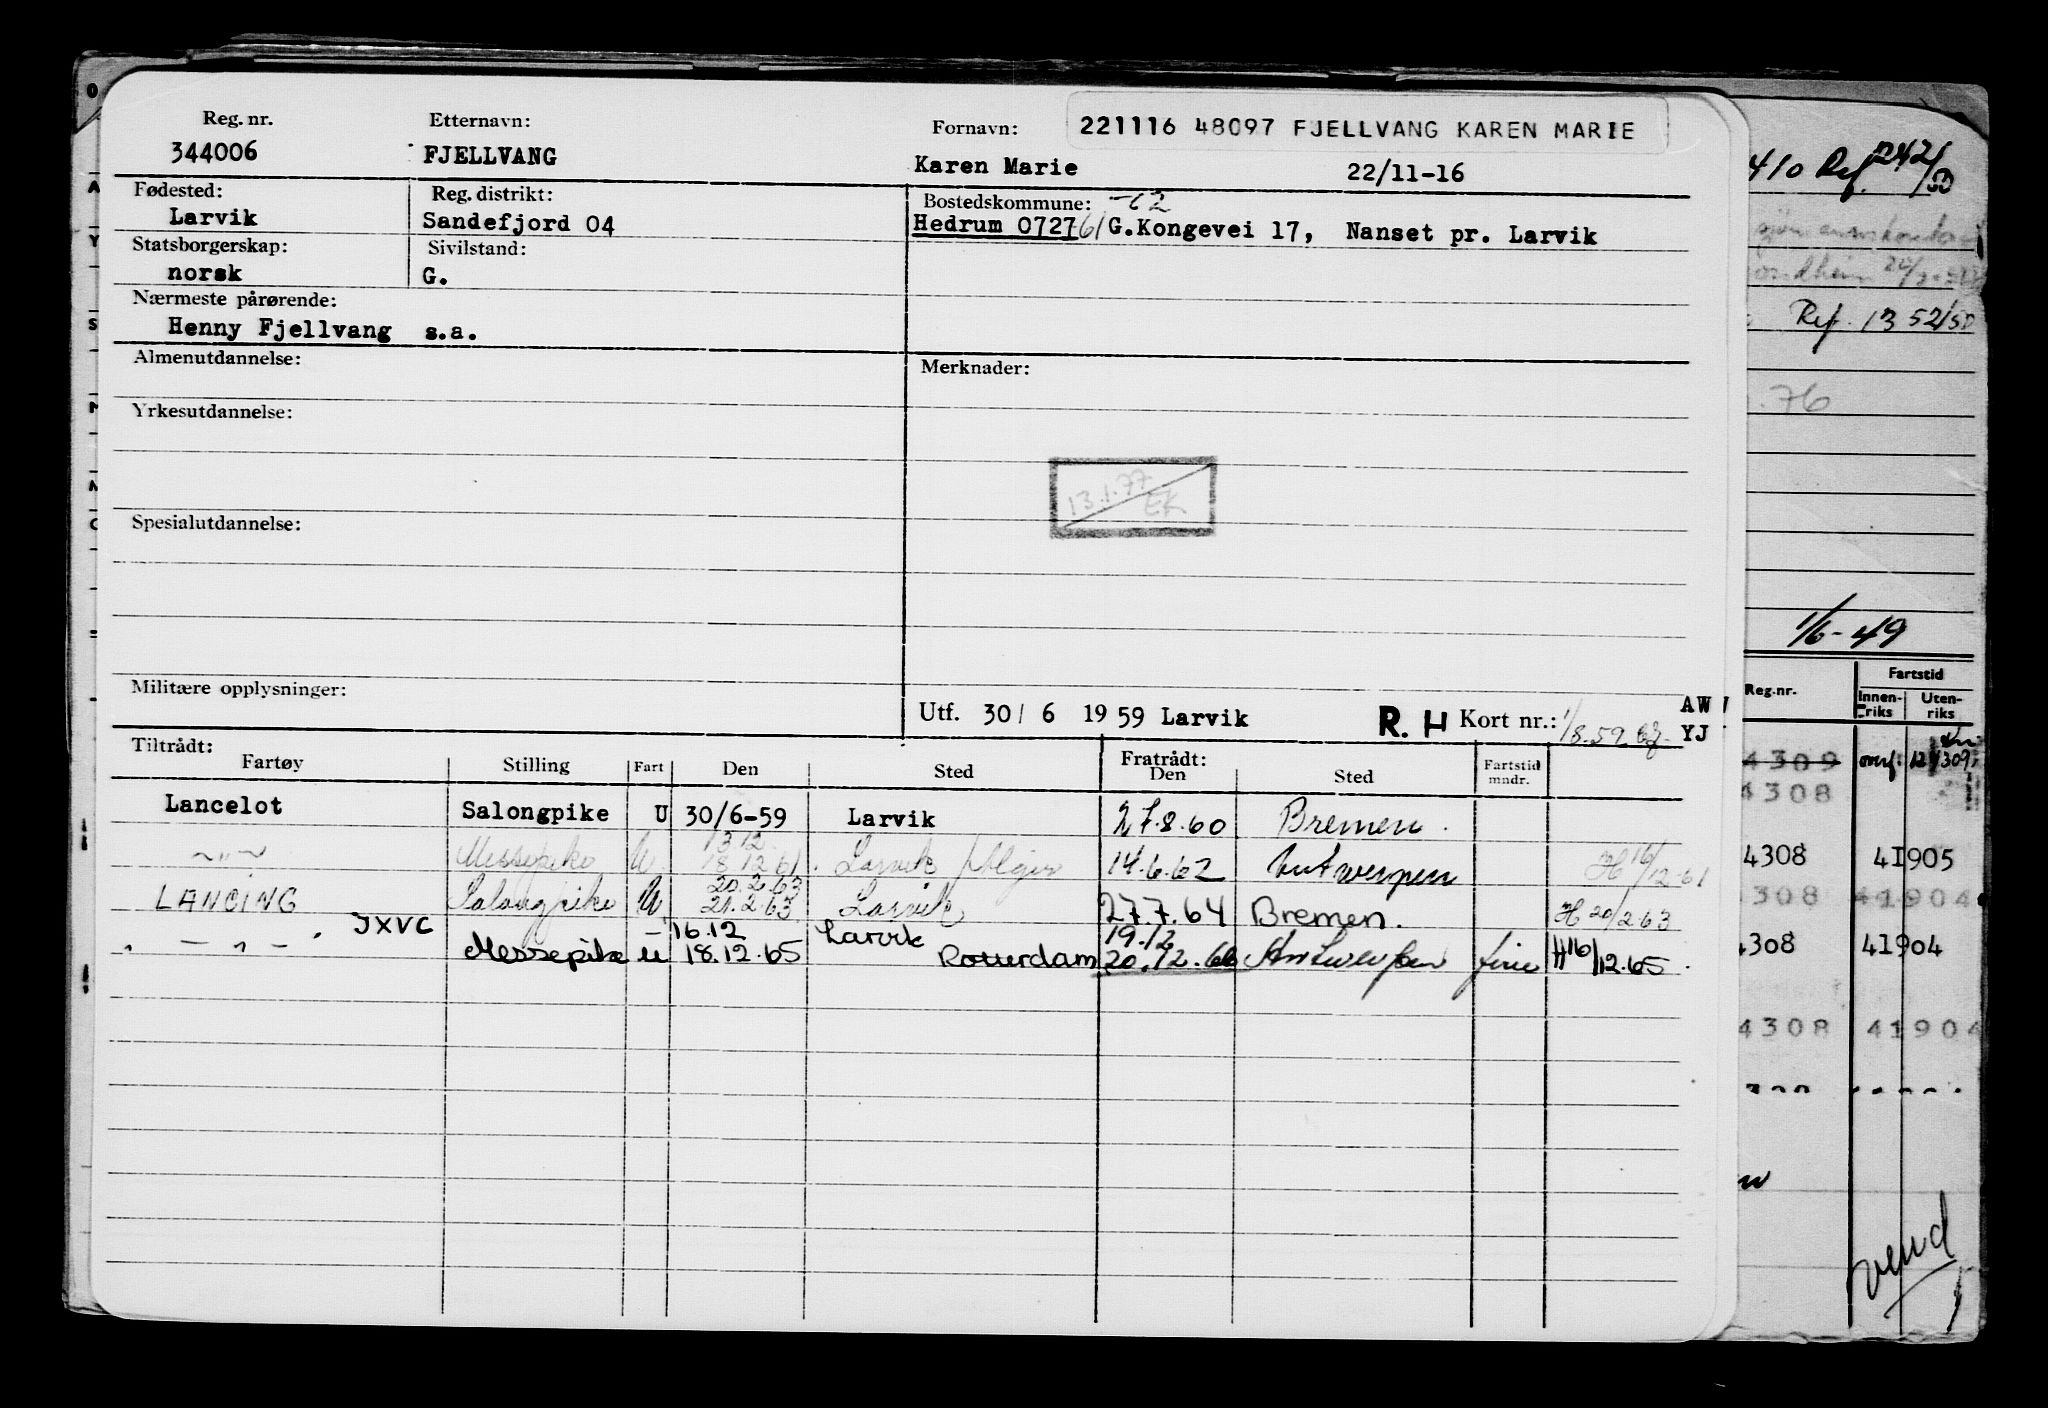 Reg. nr. Etternavn: Fornavn: 221116 48097 FJELLVANG KAREN MARIE
344006 FJELLVANG Karen Marie 22/11-16
Fødested: Reg. distrikt: Bostedskommune: -62
Larvik Sandefjord 04 Hedrum 0727 61 G.Kongevei 17, Nanset pr. Larvik
Statsborgerskap: Sivilstand:
norsk G.
Nærmeste pårørende:
Henny Fjellvang s.a.
Almenutdannelse: Merknader:
Yrkesutdannelse:
13.1.77
EK
Spesialutdannelse:
Militære opplysninger:
Utf. 30/ 6 1959 Larvik R. H Kort nr.: 1/8.59
AW
YJ
Tiltrådt: Fratrådt:
Fartøy Stilling Fart Den Sted Den Sted Fartstid mndr.
Lancelot Salongpike U 30/6-59 Larvik 27.8.60 Bremen.
13 12
— " — Messepike U 18.12 61. Larvik 14.6.62 Antwerpen H 16/12.61
20.2.63
LANCING Salongpike U 21.2.63 Larvik 27.7.64 Bremen. H 20/2.63
JXVC 16.12 Larvik 19.12
" — " — Messepike U 18.12.65 Rotterdam 20.12.66 Antwerpen ferie H16/12.65
410 Ref. 242/50
Ref. 1352/50
.76
1/6-49
Reg.nr. Fartstid
Innen-riks Uten-riks
4309 overf:
4308
4308 41905
4308 41904
4308 41904
4308 41904
vend